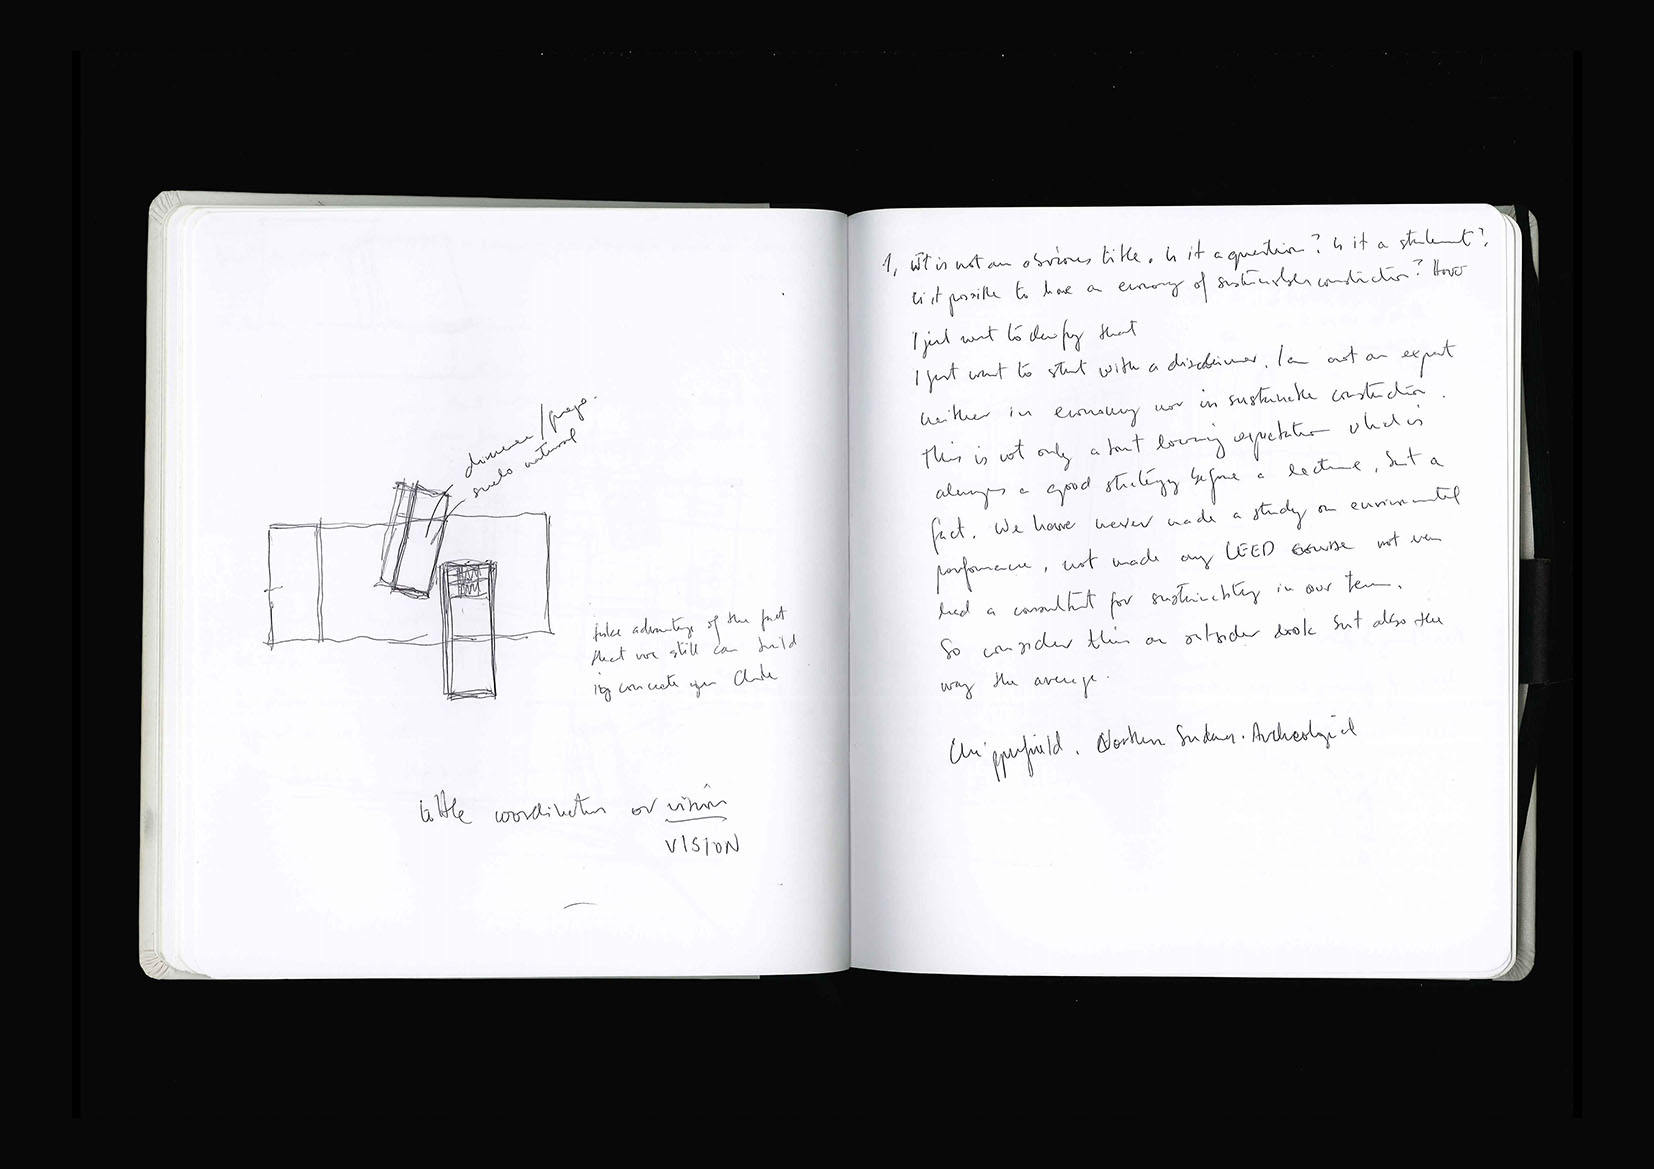 suelo natural
take advantage of the fact
that we still can build
in concrete
little coordination or vision
VISION
1, it is not an obvious title. Is it a question? Is it a statement?
is it possible to have an economy of sustainable construction? How
I just want to clarify that
I just want to start with a disclaimer. I am not an expert
neither in economy nor in sustainable construction.
This is not only about lowering expectation which is
always a good strategy before a lecture, but a
fact. We have never made a study on environmental
performance, not made any LEED course not even
had a consultant for sustainability in our team.
So consider this an outsider look but also the
way the average.
Chipperfield. Northern Sudan. Archeological